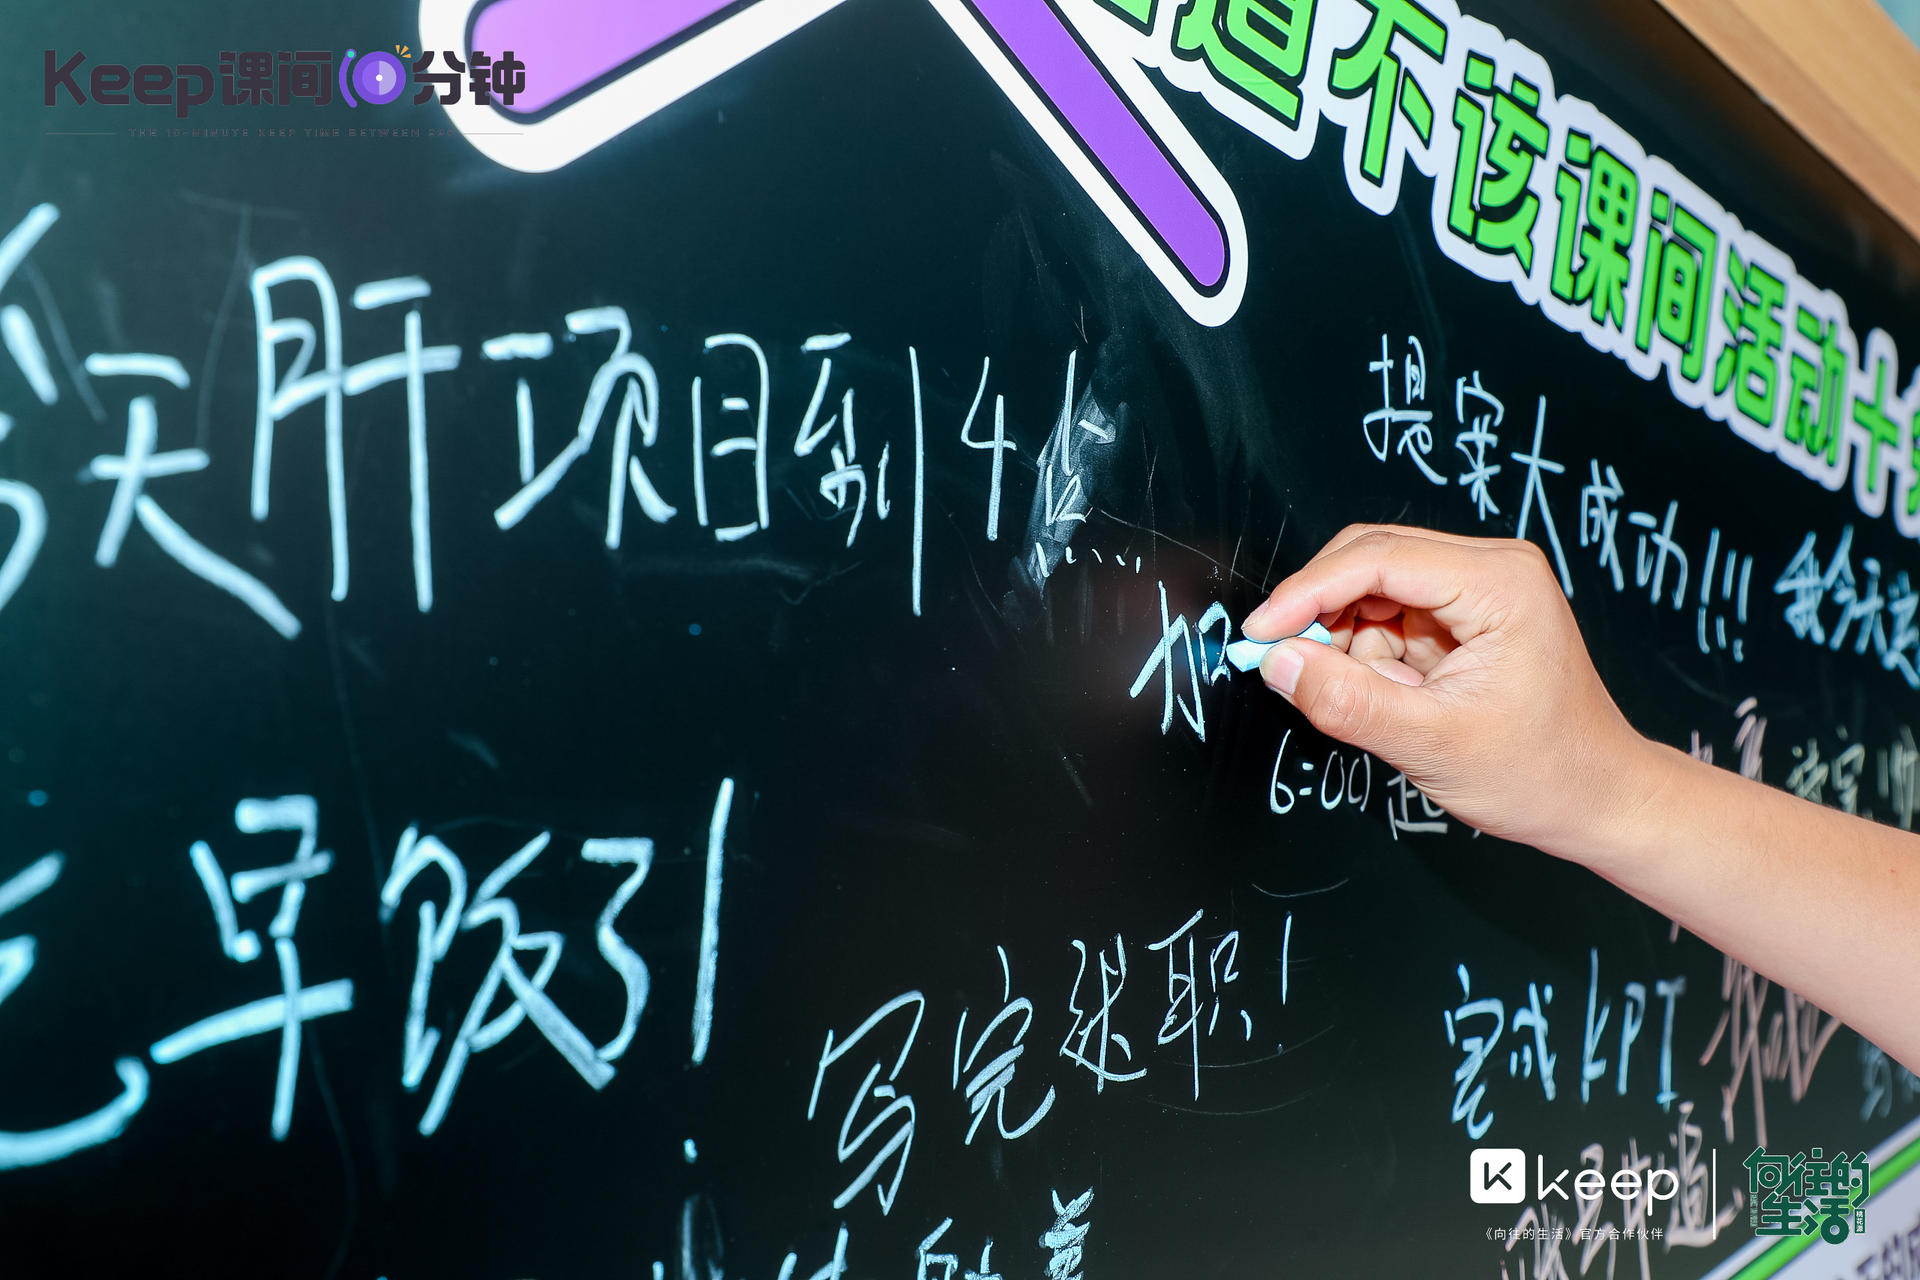 Keep课间10分钟
THE 10-MINUTE KEEP TIME BETWEEN
道不该课间活动十
今天肝项目到14点.....
提案大成功!!!
我今天
加
6:00起
吃早饭了!
写完述职!
完成KPI
keep
《向往的生活》官方合作伙伴
向往的生活
桃花源